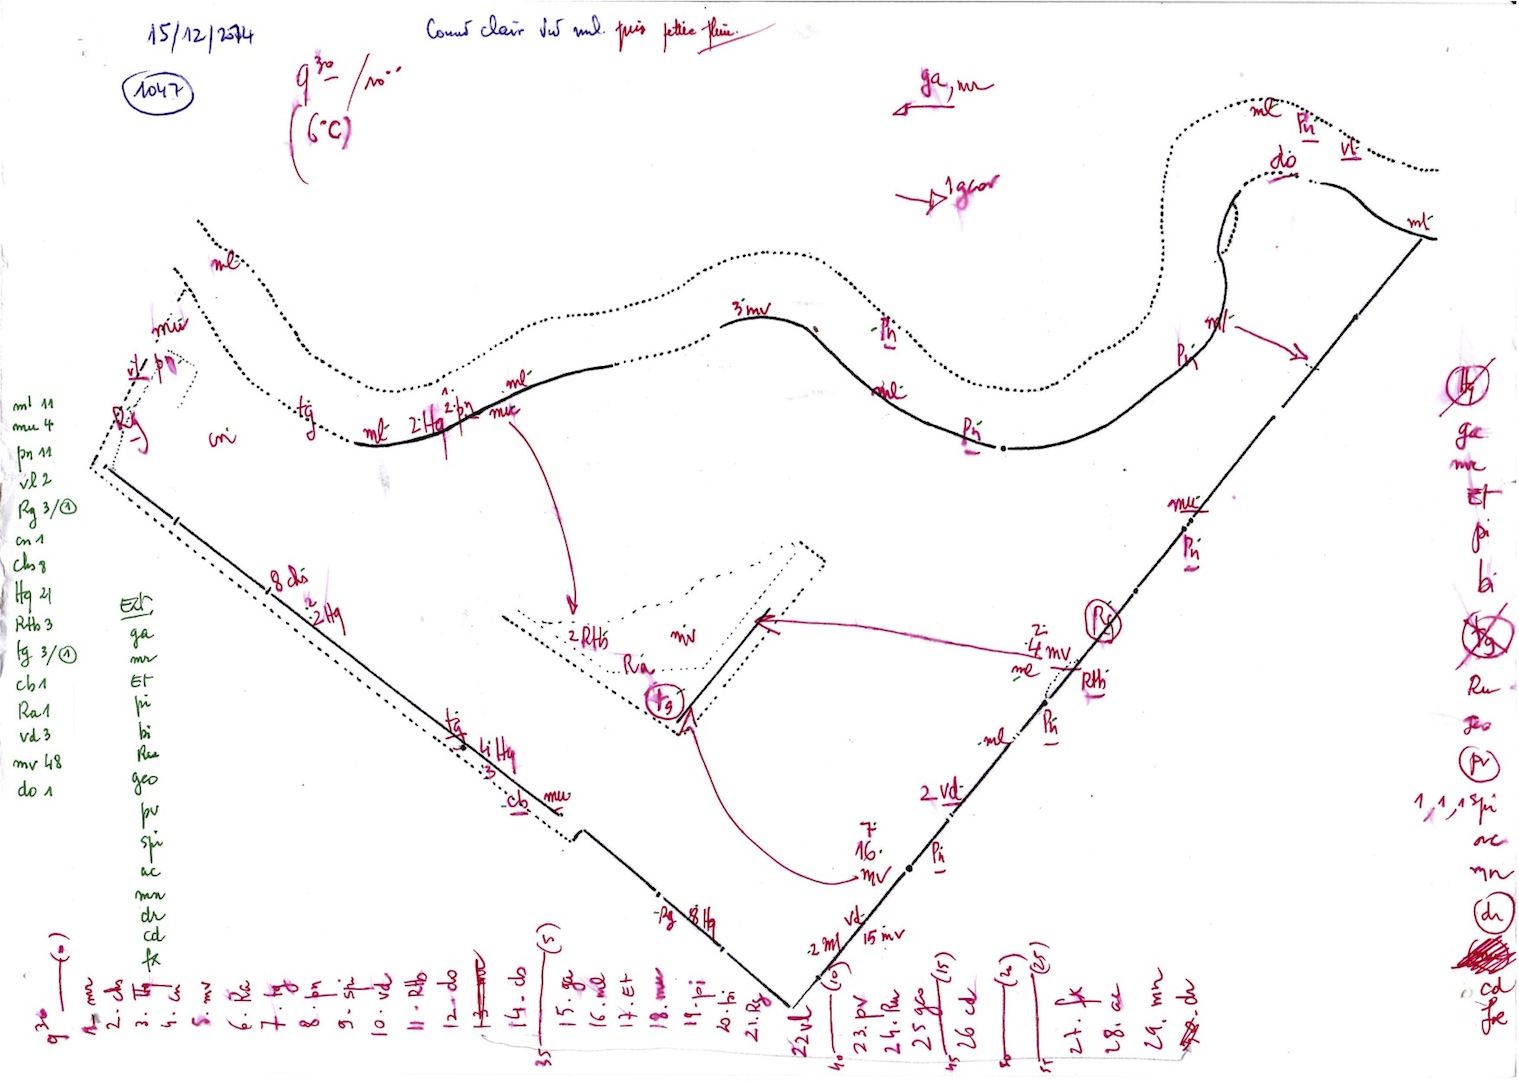 15/12/2014
1047
puis petite pluie.
9 30 / 10
(6°C)
ga, mr
1 geo
ml
Pn
vl
do
ml
ml
3 mv
Pn
ml
Pn
Pn
ml
vl
pn
Rg
cn
tg
ml
2 Hg
2 pn
ml
mu
ml 11
mu 4
pn 11
vl 2
Rg 3/1
cn 1
chs 8
Hg 21
Rtb 3
tg 3/1
cb 1
Ra 1
vd 3
mv 48
do 1
Ext.
ga
mr
Et
pi
bi
Ru
geo
pv
spi
ac
mn
dr
cd
fx
8 chs
2 Hg
tg
4 Hg
3
cb
mu
Rg
8 Hg
2 Rtb
mv
Ra
tg
mu
Pn
Rg
2
4 mv
ml
Rtb
Pn
ml
2 vd
7
16
mv
Pn
vd
15 mv
2 ml
Hg
ga
mr
Et
pi
bi
tg
Ru
geo
pv
1, 1, 1 spi
ac
mn
dr
cd
fx
9 30
1. mr
2. chs
3. Hg
4. cn
5. mv
6. Ra
7. tg
8. pn
9. spi
10. vd
11. Rtb
12. do
14. cb
35 (5)
15. ga
16. ml
17. Et
18. mu
19. pi
20. bi
21. Rg
22 vl
40 (10)
23. pv
24. Ru
25 geo
45 (15)
26 cd
50 (20)
55 (25)
27. fx
28. ac
29. mn
dr